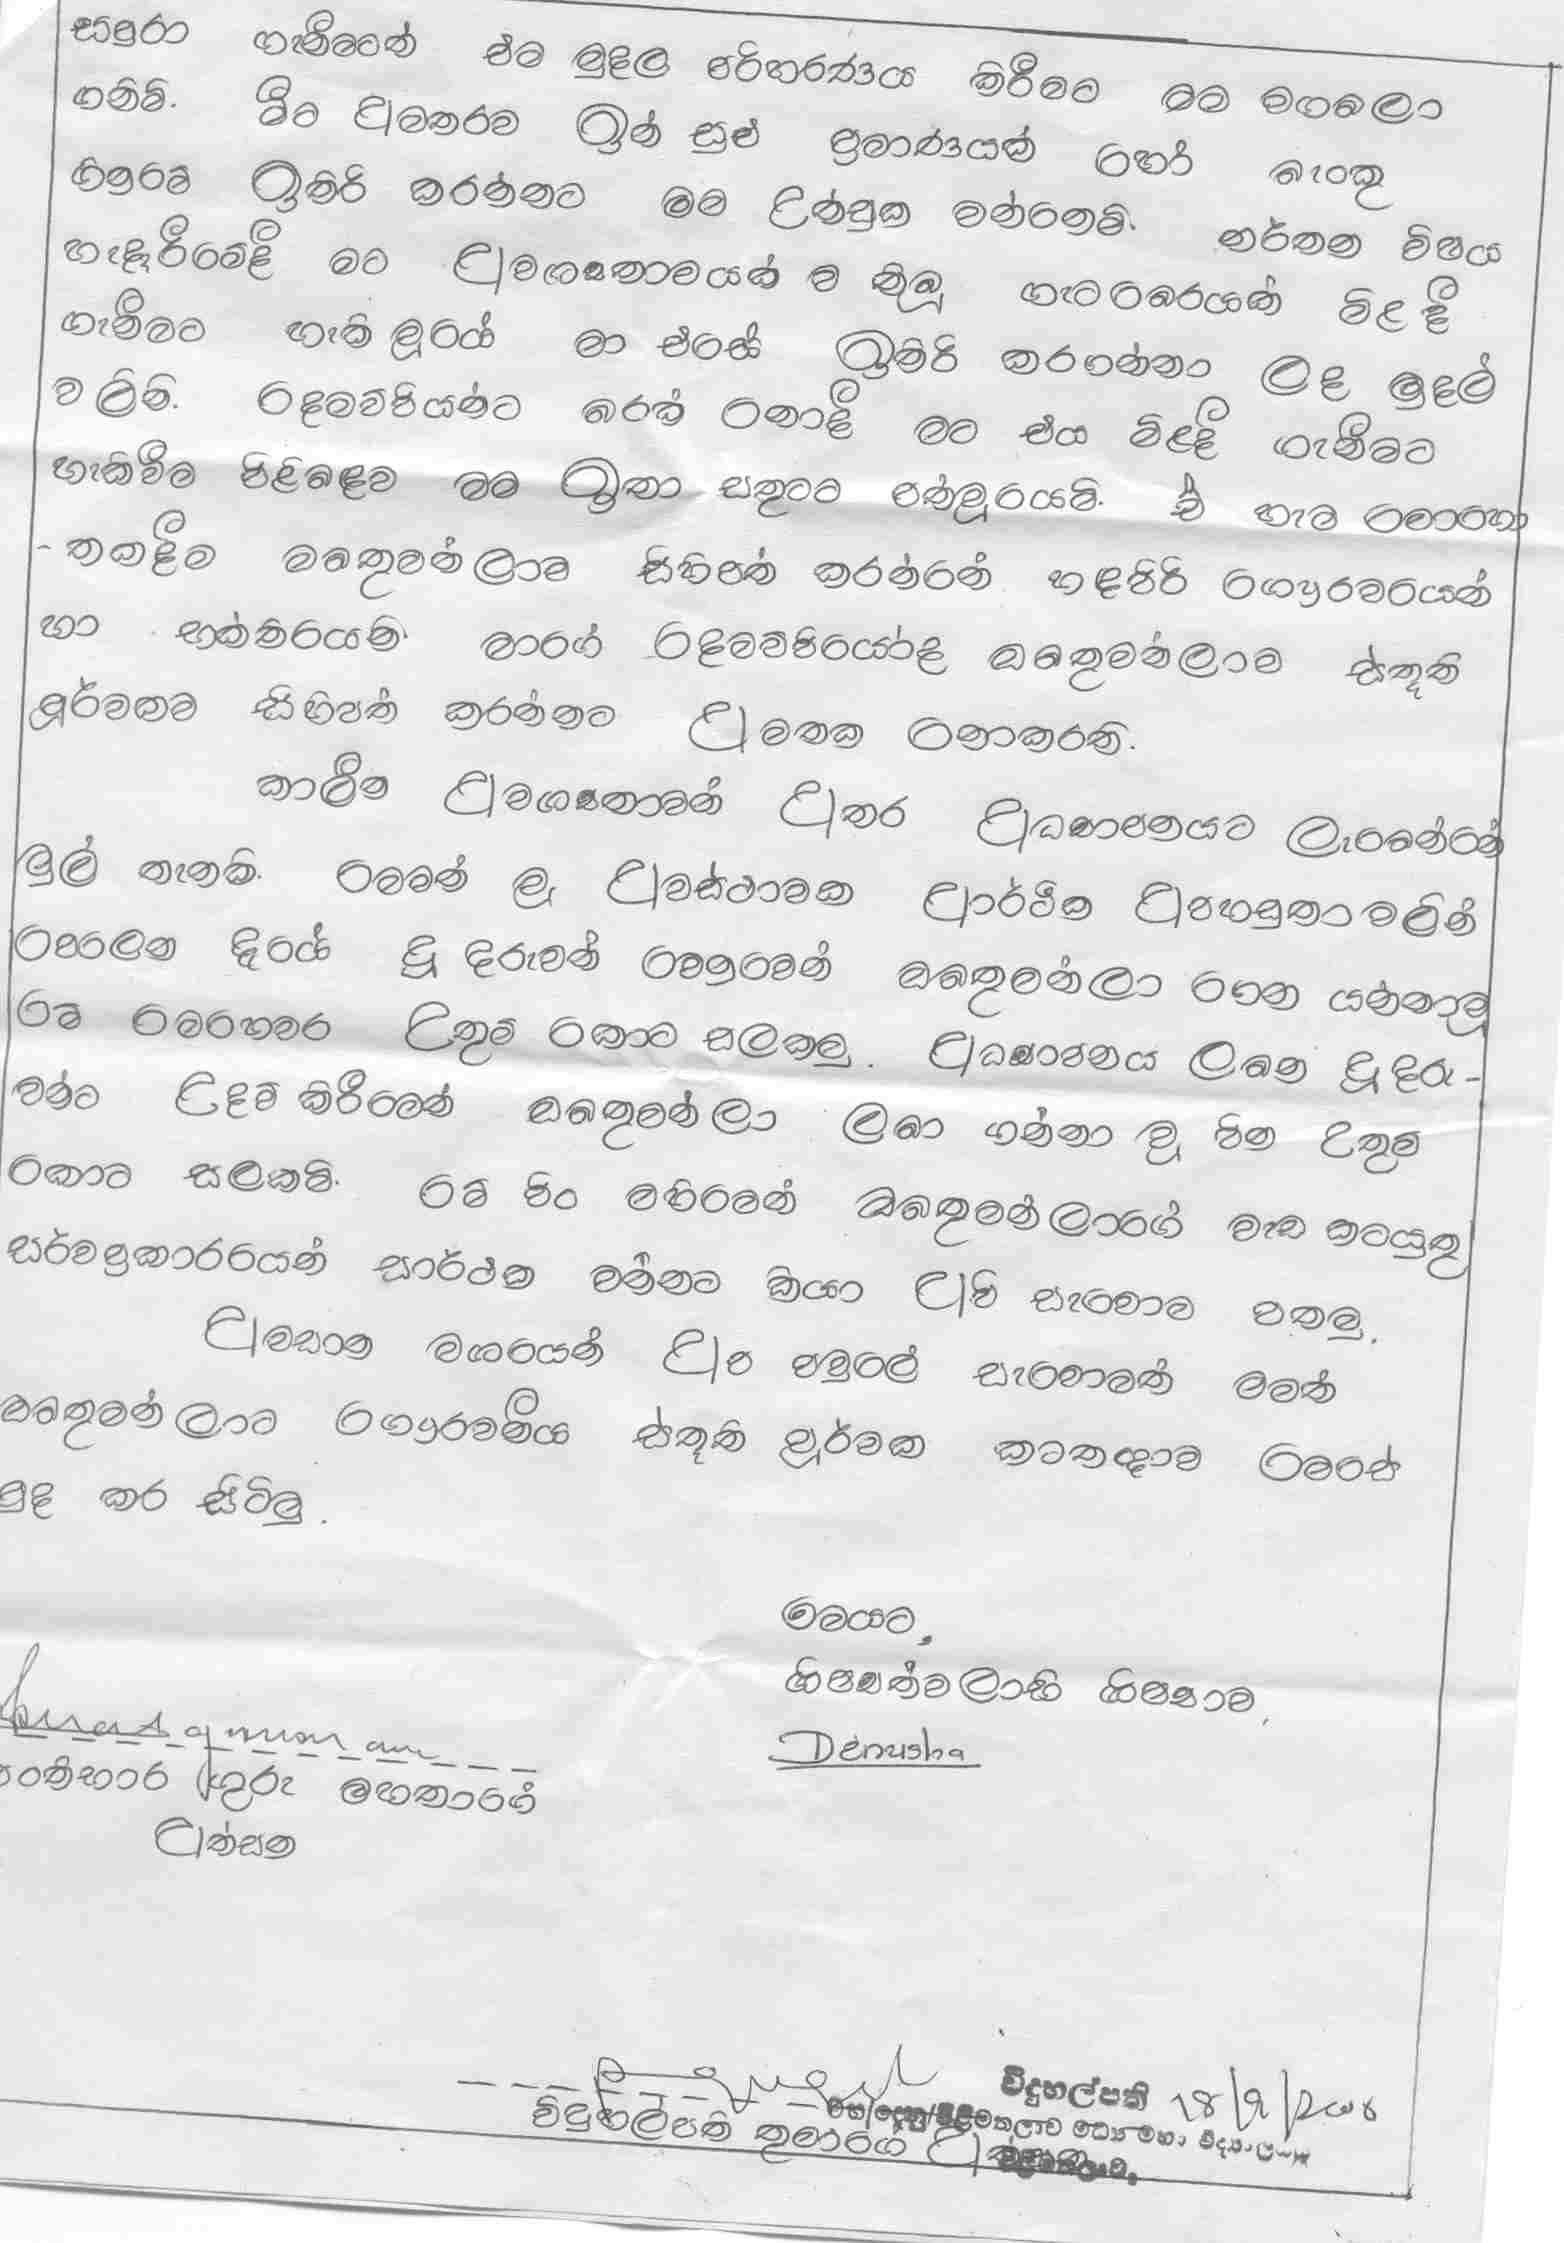 සපුරා ගැනීමටත් එම මුදල පරිහරණය කිරීමට මම වගබලා
ගනිමි. මීට අමතරව ඉන් සුළු ප්‍රමාණයක් හෝ බැංකු
ගිණුමේ ඉතිරි කරන්නට මම උත්සුක වන්නෙමි. නර්තන විෂය
හැදෑරීමේදී මට අවශ්‍යතාවයක් ව තිබූ ගැටබෙරයක් මිළ දී
ගැනීමට හැකි වූයේ මා එසේ ඉතිරි කරගන්නා ලද මුදල්
වලිනි. දෙමව්පියන්ට බරක් නොදී මට එය මිළදී ගැනීමට
හැකිවීම පිළිබඳව මම ඉතා සතුටට පත්වූයෙමි. ඒ හැම මොහො
-තකදීම ඔබතුමන්ලාව සිහිපත් කරන්නේ හදපිරි ගෞරවයෙන්
හා භක්තියෙනි. මාගේ දෙමව්පියෝද ඔබතුමන්ලාව ස්තූති
පූර්වකව සිහිපත් කරන්නට අමතක නොකරති.
කාලීන අවශ්‍යතාවන් අතර අධ්‍යාපනයට ලැබෙන්නේ
මුල් තැනකි. මෙවන් වූ අවස්ථාවක ආර්ථික අපහසුතා වලින්
පෙලෙන දූයේ දූ දරුවන් වෙනුවෙන් ඔබතුමන්ලා ගෙන යන්නාවූ
මේ මෙහෙවර උතුම් කොට සලකමු. අධ්‍යාපනය ලබන දූ දරු -
වන්ට උදව් කිරීමෙන් ඔබතුමන්ලා ලබා ගන්නා වූ පින උතුම්
කොට සලකමි. මේ පිං මහිමෙන් ඔබතුමන්ලාගේ වැඩ කටයුතු
සර්වප්‍රකාරයෙන් සාර්ථක වන්නට කියා අපි සැවොම පතමු.
අවසාන වශයෙන් අප පවුලේ සැවොමත් මමත්
ඔබතුමන්ලාට ගෞරවනීය ස්තූති පූර්වක කටතඥාව මෙසේ
මුද කර සිටිමු.
මෙයට,
ශිෂ්‍යත්වලාභී ශිෂ්‍යාව,
Denusha
පංතිභාර ගුරු මහතාගේ
අත්සන
විදුහල්පති 18/9/2006
මධ්‍ය මහා විද්‍යාලය
විදුහල්පති තුමාගේ අත්සන